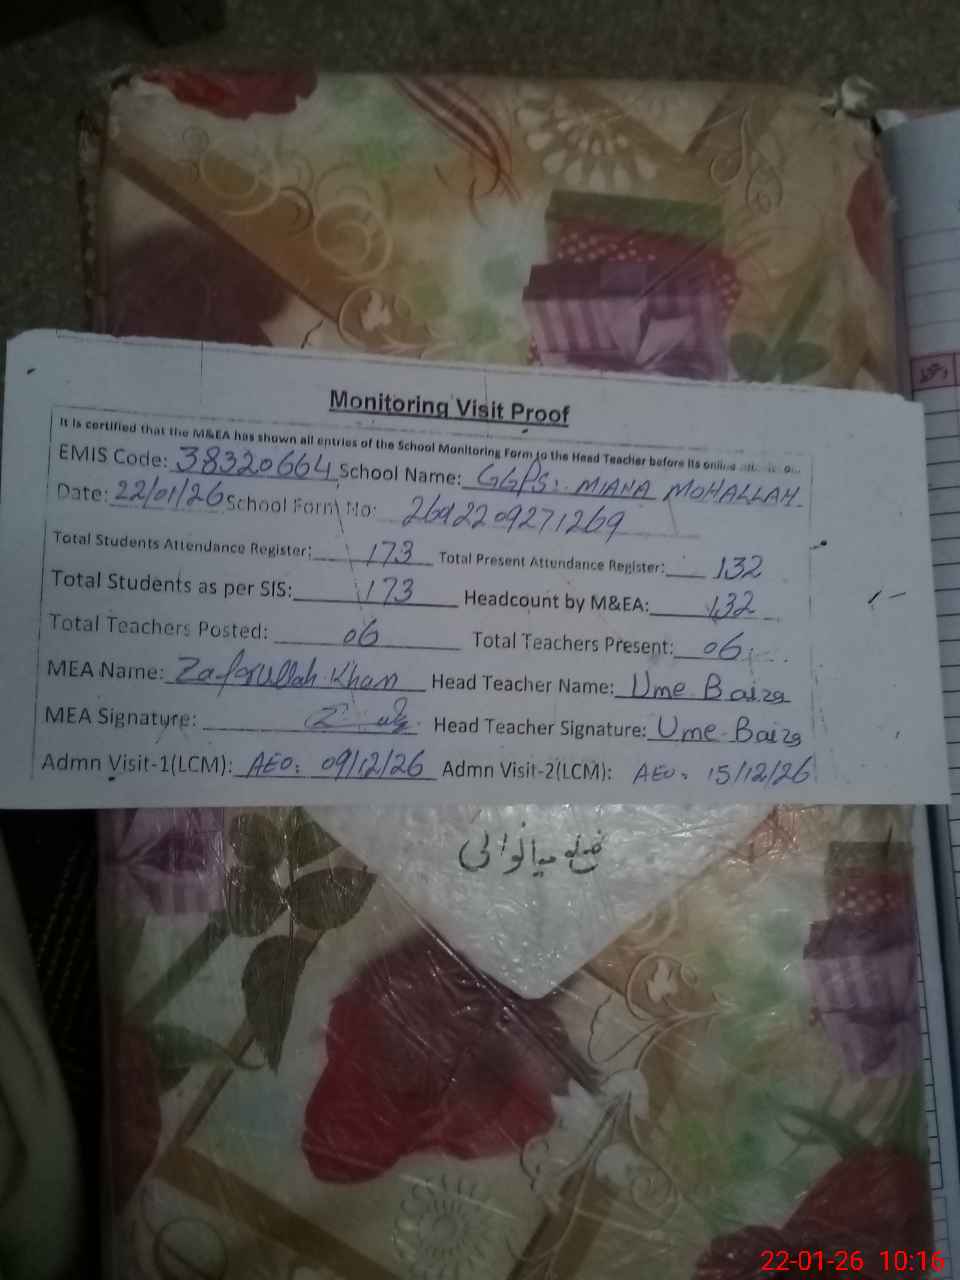 Monitoring Visit Proof
It is certified that the M&EA has shown all entries of the School Monitoring Form to the Head Teacher before its online
EMIS Code: 38320664 School Name: GGPS: MIANA MOHALLAH
Date: 22/01/26 School Form No: 2692209271269
Total Students Attendance Register: 173 Total Present Attendance Register: 132
Total Students as per SIS: 173 Headcount by M&EA: 132
Total Teachers Posted: 06 Total Teachers Present: 06
MEA Name: Zafarullah Khan Head Teacher Name: Ume Baiza
MEA Signature: Head Teacher Signature: Ume Baiza
Admn Visit-1(LCM): AEO: 09/12/26 Admn Visit-2(LCM): AEO: 15/12/26
ضلع میانوالی
22-01-26 10:16